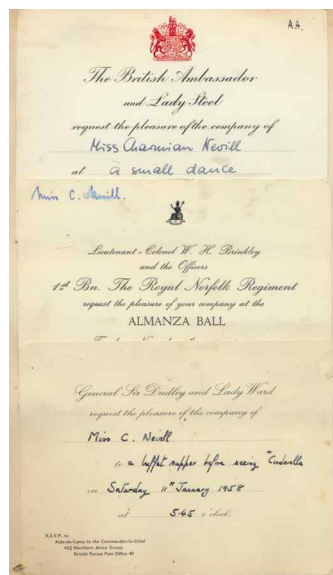 A.A.
The British Ambassador
and Lady Steel
request the pleasure of the company of
Miss Charmian Nevill
at a small dance
Miss C. Nevill.
Lieutenant-Colonel W. H. Brinkley
and the Officers
1st Bn. The Royal Norfolk Regiment
request the pleasure of your company at the
ALMANZA BALL
General Sir Dudley and Lady Ward
request the pleasure of the company of
Miss C. Nevill
to a buffet supper before seeing "Cinderella
on Saturday 11th January 1958
at 5.45 o'clock.
R.S.V.P. to
Aide-de-Camp to the Commander-in-Chief
HQ Northern Army Group
British Forces Post Office 40